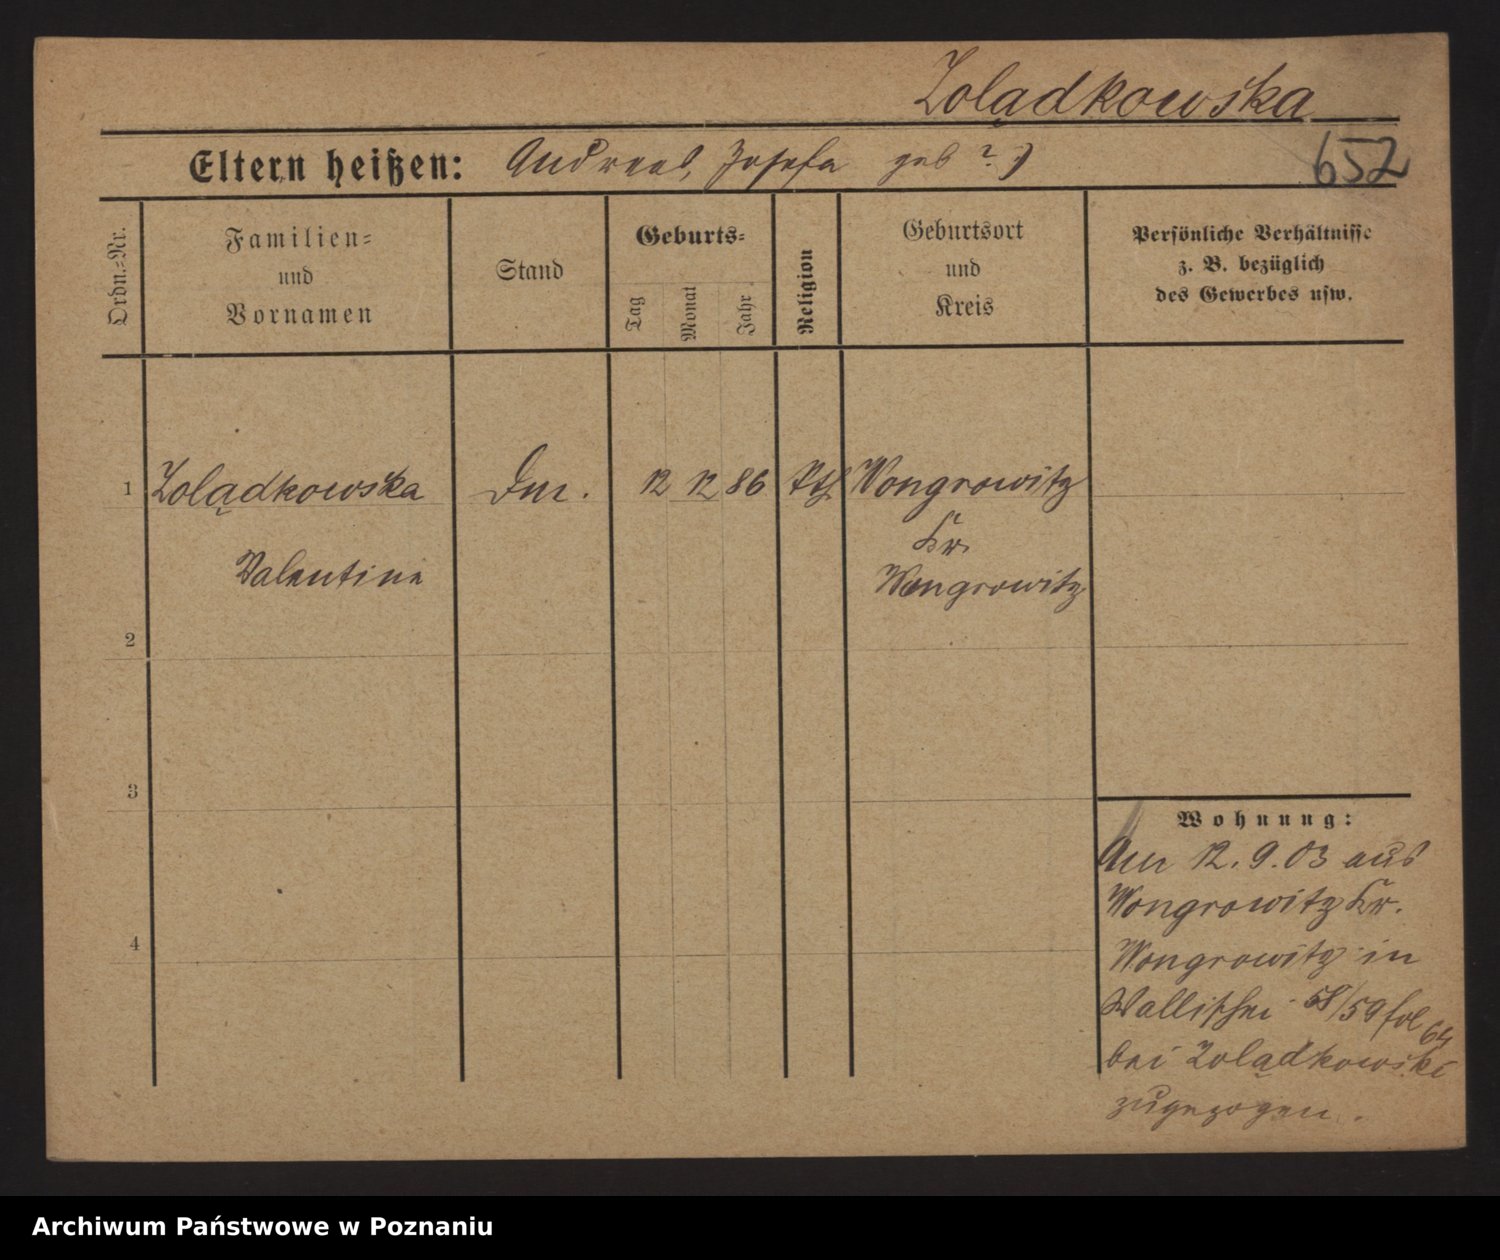 Zolądkowska
Eltern heißen: Andreas, Josefa geb ?)
652
Ordn.=Nr.
Familien=
und
Vornamen
Stand
Geburts=
Tag
Monat
Jahr
Religion
Geburtsort
und
Kreis
Persönliche Verhältnisse
z. B. bezüglich
des Gewerbes usw.
1 Zolądkowska 12 12 86 kth Wongrowitz
Kr.
Valentine Wongrowitz
2
3
4
Wohnung:
Am 12.9.03 aus
Wongrowitz Kr.
Wongrowitz in
Wallischei 58/59 fol 64
bei Zolądkowski
zugezogen.
Archiwum Państwowe w Poznaniu